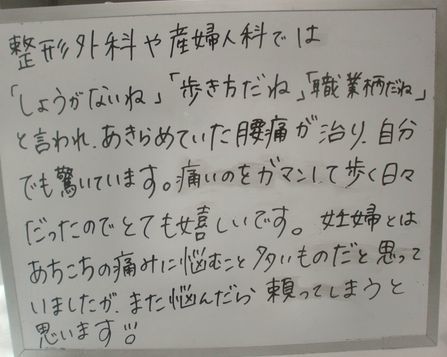 整形外科や産婦人科では
「しょうがないね」「歩き方だね」「職業柄だね」
と言われ、あきらめていた腰痛が治り、自分
でも驚いています。痛いのをガマンして歩く日々
だったのでとても嬉しいです。妊婦とは
あちこちの痛みに悩むこと多いものだと思って
いましたが、また悩んだら頼ってしまうと
思います!!!